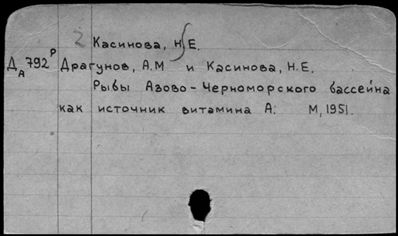 2 Касинова, Н.Е.
Д А 792 Р Драгунов, А.М и Касинова, Н.Е.
Рыбы Азово-Черноморского бассейна
как источник витамина А. М, 1951.